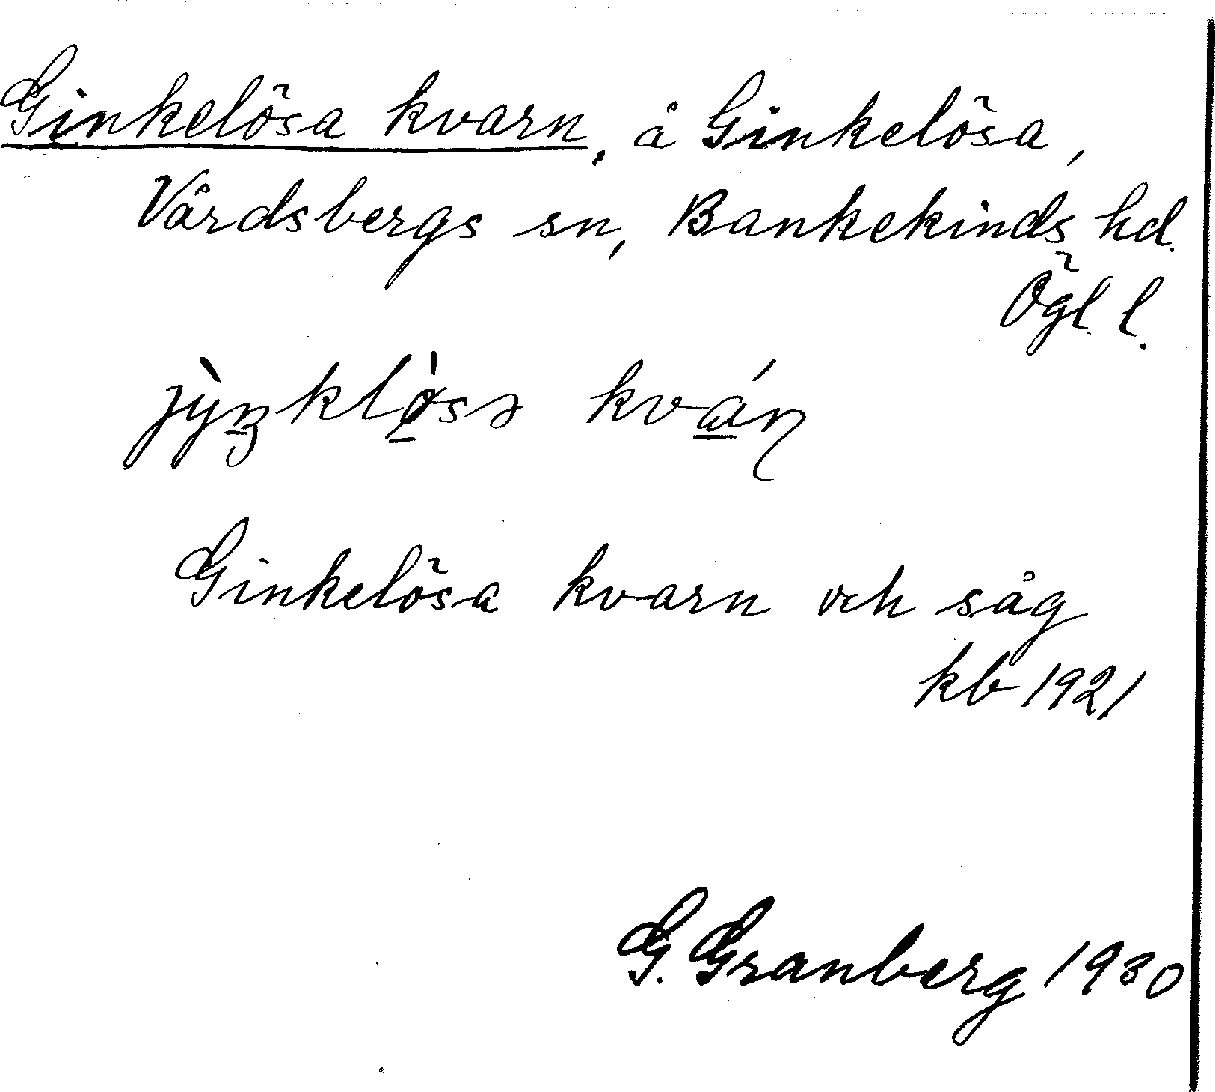 Ginkelösa kvarn, å Ginkelösa,
Vårdsbergs sn, Bankekinds hd.
Ögl. l.
kván
Ginkelösa kvarn och såg
kb 1921
G. Granberg 1930